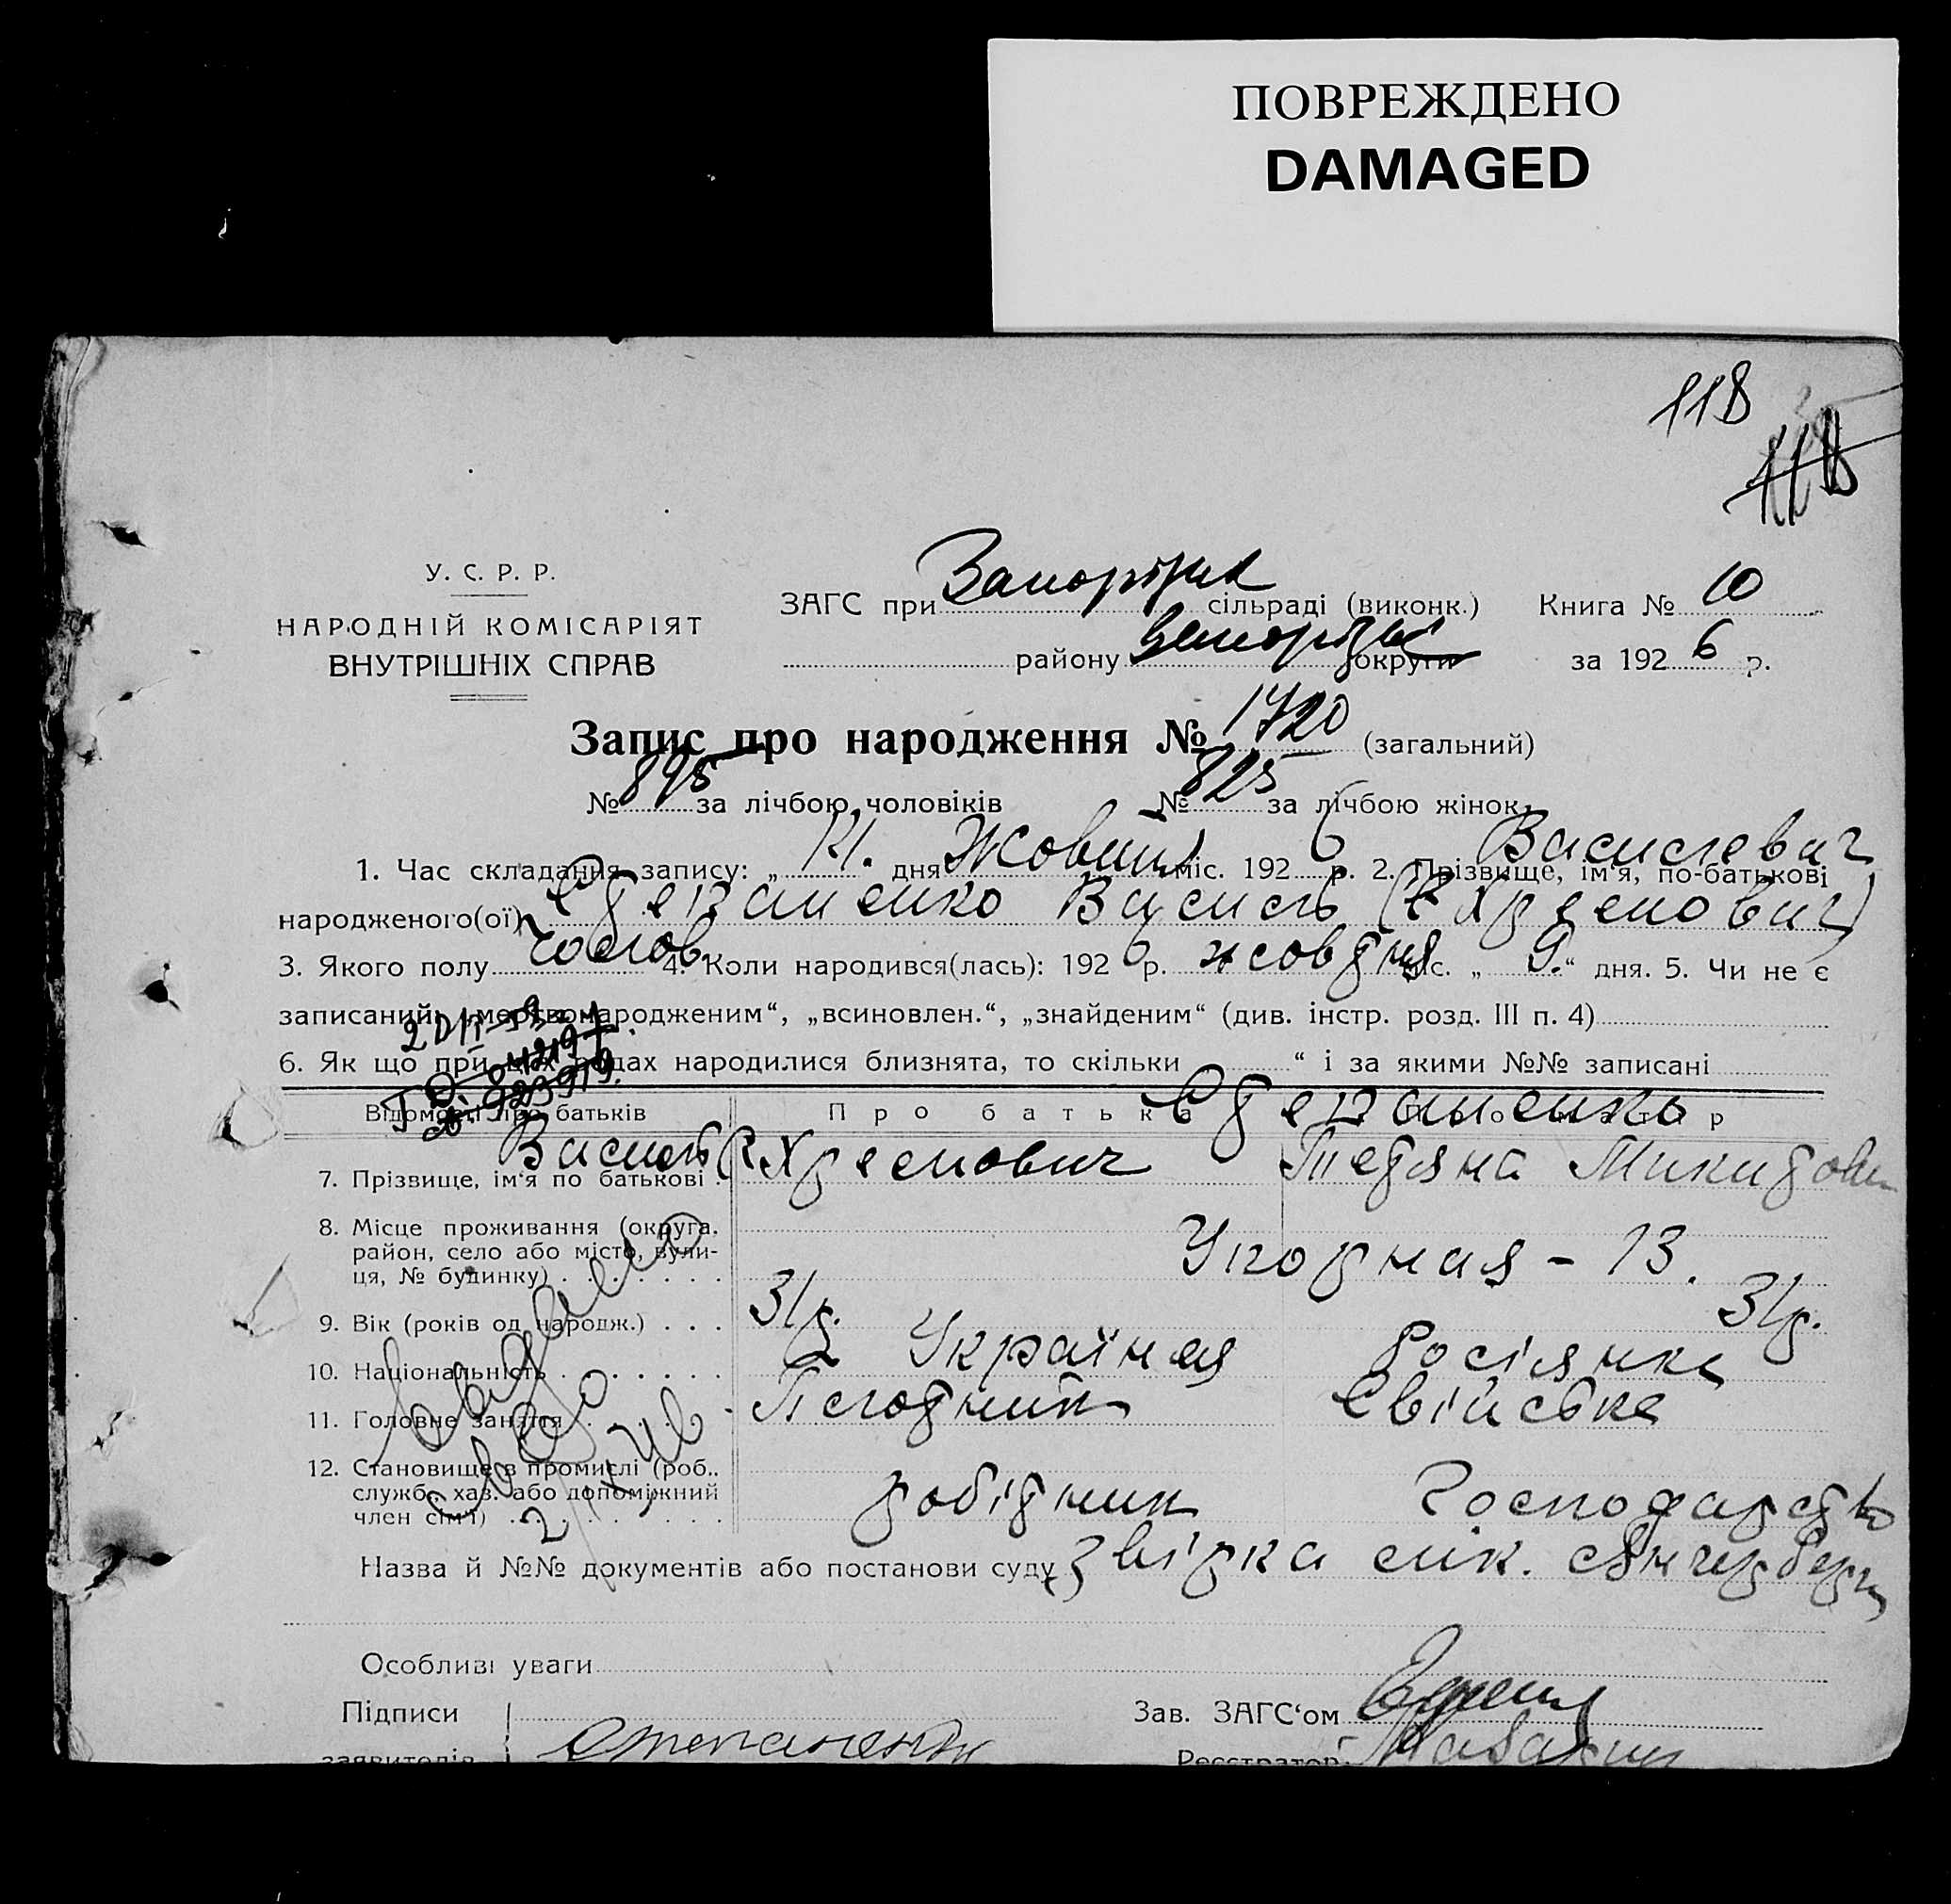 ПОВРЕЖДЕНО
DAMAGED
118
118
У. С. Р. Р.
НАРОДНІЙ КОМІСАРІЯТ
ВНУТРІШНІХ СПРАВ
ЗАГС при Запоріжж сільраді (виконк.) Книга № 10
району Запорізьк округи за 1926 р.
Запис про народження № 1720 (загальний)
№ 895 за лічбою чоловіків № 825 за лічбою жінок.
1. Час складання запису: „ 21. " дня Жовтня міс. 1926 р. 2. Прізвище, ім'я, по-батькові Васильевич
народженого(ої) Степаненко Василь (Єхремович)
3. Якого полу чолов. 4. Коли народився(лась): 1926 р. жовтня міс. „ 9. " дня. 5. Чи не є
записаний: „мертвонародженим", „всиновлен.", „знайденим" (див. інстр. розд. III п. 4)
6. Як що при цих родах народилися близнята, то скільки " і за якими №№ записані
Відомості про батьків Про батька Про матір
Степаненко
7. Прізвище, ім'я по батькові Василь Єхремович Тетяна Микитовн
8. Місце проживання (округа, район, село або місто, вулиця, № будинку) Упорная – 13.
9. Вік (років од народж.) 31р. 31р.
10. Національність Україня Росіянка
11. Головне заняття Плотник Свійське
12. Становище в промислі (роб., служб., хаз. або допоміжний член сім'ї) робітник Господарство
Назва й №№ документів або постанови суду Звірка лік.
Особливі уваги
Підписи Зав. ЗАГС'ом
заявителів Степаненко Реєстратор